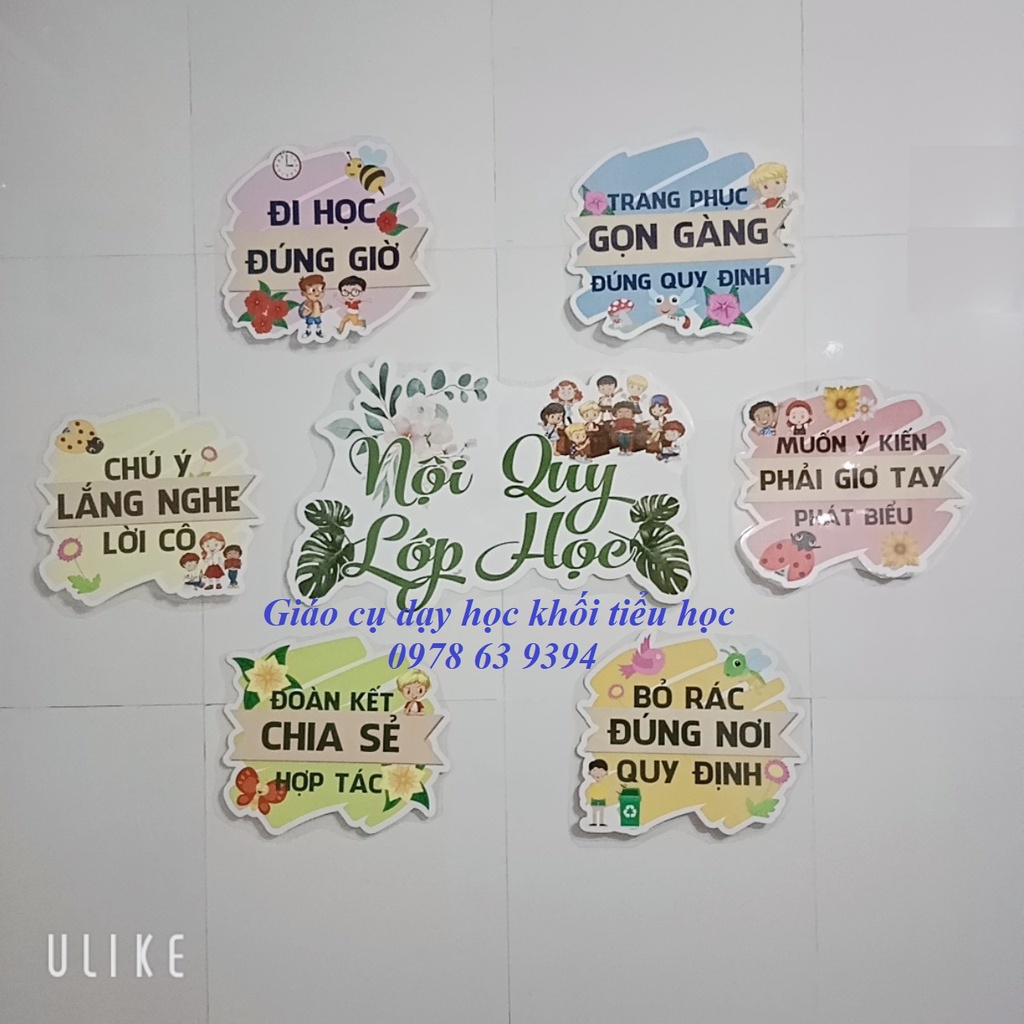 ĐI HỌC
ĐÚNG GIỜ
TRANG PHỤC
GỌN GÀNG
ĐÚNG QUY ĐỊNH
CHÚ Ý
LẮNG NGHE
LỜI CÔ
Nội Quy
Lớp Học
MUỐN Ý KIẾN
PHẢI GIƠ TAY
PHÁT BIỂU
Giáo cụ dạy học khối tiểu học
0978 63 9394
ĐOÀN KẾT
CHIA SẺ
HỢP TÁC
BỎ RÁC
ĐÚNG NƠI
QUY ĐỊNH
ULIKE